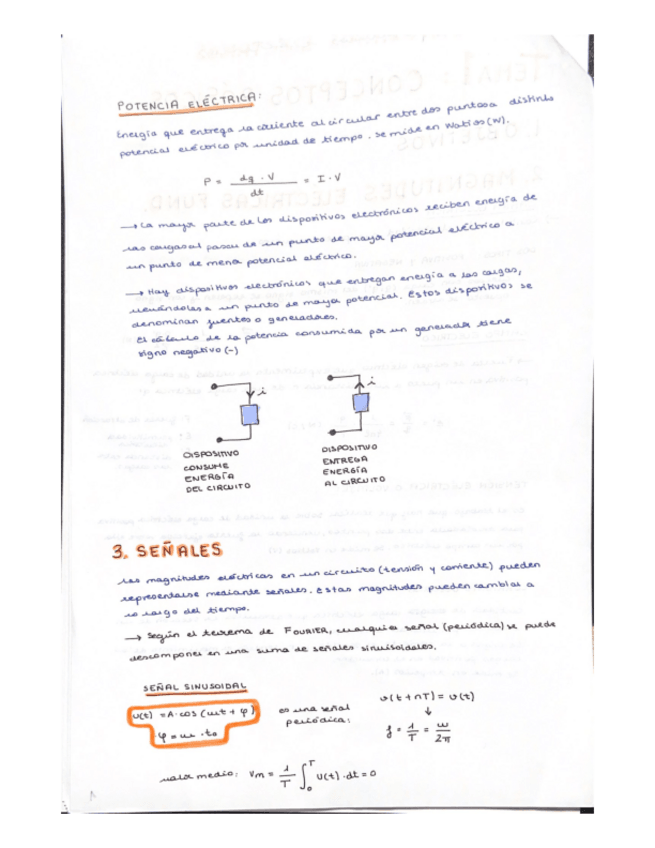 POTENCIA ELÉCTRICA:
Energía que entrega la corriente al circular entre dos puntos a distinto
potencial eléctrico por unidad de tiempo. Se mide en Watios (W).
P = dq · V / dt = I · V
→ La mayor parte de los dispositivos electrónicos reciben energía de
las cargas al pasar de un punto de mayor potencial eléctrico a
un punto de menor potencial eléctrico.
→ Hay dispositivos electrónicos que entregan energía a las cargas,
llevándolas a un punto de mayor potencial. Estos dispositivos se
denominan fuentes o generadores.
El cálculo de la potencia consumida por un generador tiene
signo negativo (-)
i
i
DISPOSITIVO
CONSUME
ENERGÍA
DEL CIRCUITO
DISPOSITIVO
ENTREGA
ENERGÍA
AL CIRCUITO
3. SEÑALES
Las magnitudes eléctricas en un circuito (tensión y corriente) pueden
representarse mediante señales. Estas magnitudes pueden cambiar a
lo largo del tiempo.
→ Según el teorema de FOURIER, cualquier señal (periódica) se puede
descomponer en una suma de señales sinusoidales.
SEÑAL SINUSOIDAL
v(t) = A·cos (ωt + φ)
φ = ω · t₀
es una señal
periódica:
v(t+nT) = v(t)
↓
f = 1/T = ω/2π
valor medio: Vm = 1/T ∫₀ᵀ v(t)·dt = 0